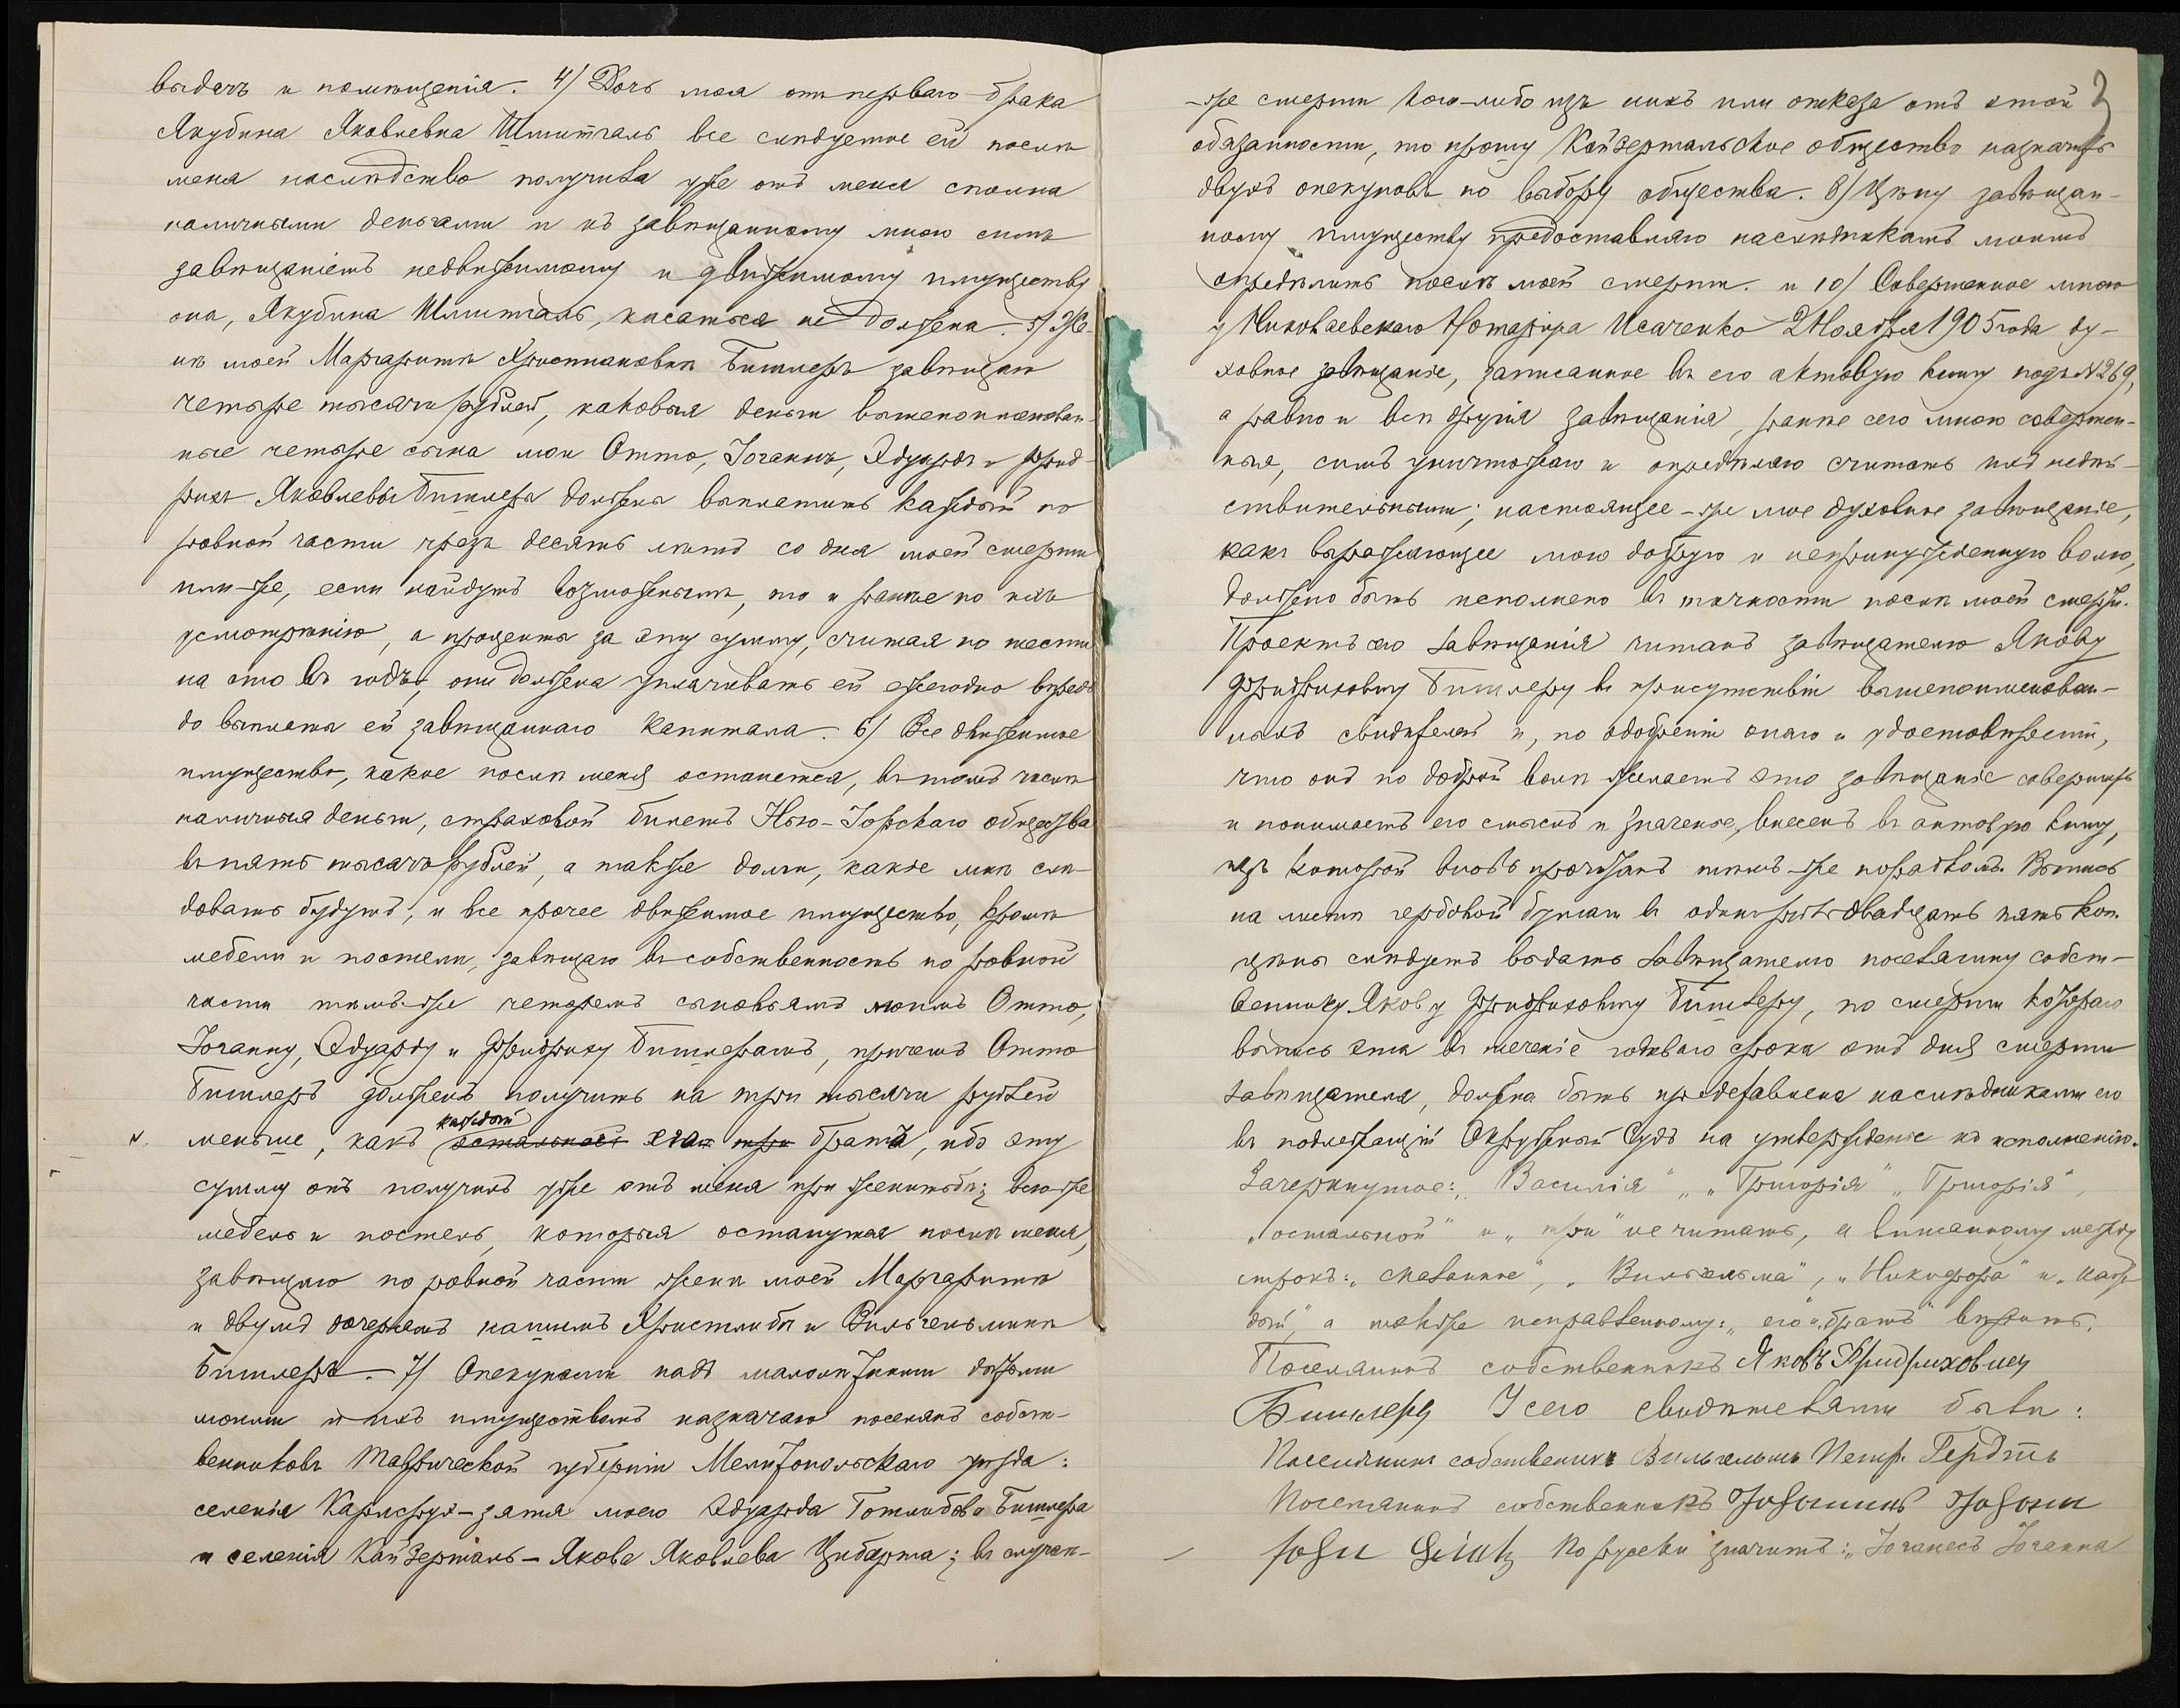 выдачъ и помѣщенія. 4) Дочь моя отъ перваго брака
Якубина Яковлевна Шлитталь все слѣдуемое ей послѣ
меня наслѣдство получила уже отъ меня сполна
наличными деньгами и къ завѣщанному мною симъ
завѣщаніемъ недвижимому и движимому имуществу
она, Якубина Шлитталь, касаться не должна. 5) Же-
нѣ моей Маргаритѣ Христіановнѣ Битлеръ завѣщаю
четыре тысячи рублей, каковыя деньги вышепоименован-
ные четыре сына мои Отто, Іоганнъ, Эдуардъ и Фрид-
рихъ Яковлевы Битлеръ должны выплатить каждый по
ровной части чрезъ десять лѣтъ со дня моей смерти
или-же, если найдутъ возможнымъ, то и ранѣе по ихъ
усмотрѣнію, а проценты за эту сумму, считая по шести
на сто въ годъ, они должны уплачивать ей ежегодно впредь
до выплаты ей завѣщаннаго капитала. 6) Все движимое
имущество, какое послѣ меня останется, въ томъ числѣ
наличныя деньги, страховой билетъ Нью-Іорскаго общества
въ пять тысячъ рублей, а также долги, какіе мнѣ слѣ-
довать будутъ, и все прочее движимое имущество, кромѣ
мебели и постели, завѣщаю въ собственность по ровной
части тѣмъ-же четыремъ сыновьямъ моимъ Отто,
Іоганну, Эдуарду и Фридриху Битлерамъ, причемъ Отто
Битлеръ долженъ получить на три тысячи рублей
каждый
меньше, какъ остальной его три братъ, ибо эту
сумму онъ получилъ уже отъ меня при женитьбѣ; всю-же
мебель и постель, которыя останутся послѣ меня,
завѣщаю по ровной части женѣ моей Маргаритѣ
и двумъ дочерямъ нашимъ Христлибѣ и Вильгельминѣ
Битлеръ. 7) Опекунами надъ малолѣтними дѣтьми
моими и ихъ имуществомъ назначаю поселянъ собст-
венниковъ Таврической губерніи Мелитопольскаго уѣзда:
селенія Карлсруэ - зятя моего Эдуарда Готлибова Битлера
и селенія Кайзерталь - Якова Яковлева Цибарта; въ случаѣ-
-же смерти кого-либо изъ нихъ или отказа отъ этой
обязанности, то прошу Кайзертальское общество назначить
двухъ опекуновъ по выбору общества. 8) Цѣну завѣщан-
ному имуществу предоставляю наслѣдникамъ моимъ
опредѣлить послѣ моей смерти. и 10) Совершенное мною
у Николаевскаго Нотаріуса Исаченко 2 Ноября 1905 года ду-
ховное завѣщаніе, записанное въ его актовую книгу подъ № 269,
а равно и всѣ другія завѣщанія, ранѣе сего мною совершен-
ныя, симъ уничтожаю и опредѣляю считать ихъ недѣй-
ствительными; настоящее-же мое духовное завѣщаніе,
какъ выражающее мою добрую и непринужденную волю,
должно быть исполнено въ точности послѣ моей смерти.
Проектъ сего завѣщанія читанъ завѣщателю Якову
Фридриховичу Битлеру въ присутствіи вышепоименован-
ныхъ свидѣтелей и, по одобреніи онаго и удостовѣреніи,
что онъ по доброй волѣ желаетъ это завѣщаніе совершить
и понимаетъ его смыслъ и значеніе, внесенъ въ актовую книгу,
изъ которой вновь прочитанъ тѣмъ-же порядкомъ. Выпись
на листѣ гербовой бумаги въ одинъ рубль двадцать пять коп.
цѣны слѣдуетъ выдать завѣщателю поселянину собст-
веннику Якову Фридриховичу Битлеру, по смерти котораго
выпись эта въ теченіе годоваго срока отъ дня смерти
завѣщателя, должна быть представлена наслѣдниками его
въ подлежащій Окружный Судъ на утвержденіе къ исполненію.
Зачеркнутое: „Василія" „Григорія" „Григорія",
„остальной" и „три" не читать, а вписанному между
строкъ: „сказанные", „Вильгельма", „Никифора" и „каж-
дый", а также исправленному: „его" „братъ" вѣрить.
Поселянинъ собственникъ Яковъ Фридриховичъ
Битлеръ У сего свидѣтелями были:
Поселянинъ собственникъ Вильгельмъ Петр. Гердтъ
Поселянинъ собственникъ Johannes Johann
По русски значитъ: „Іоганесъ Іоганна